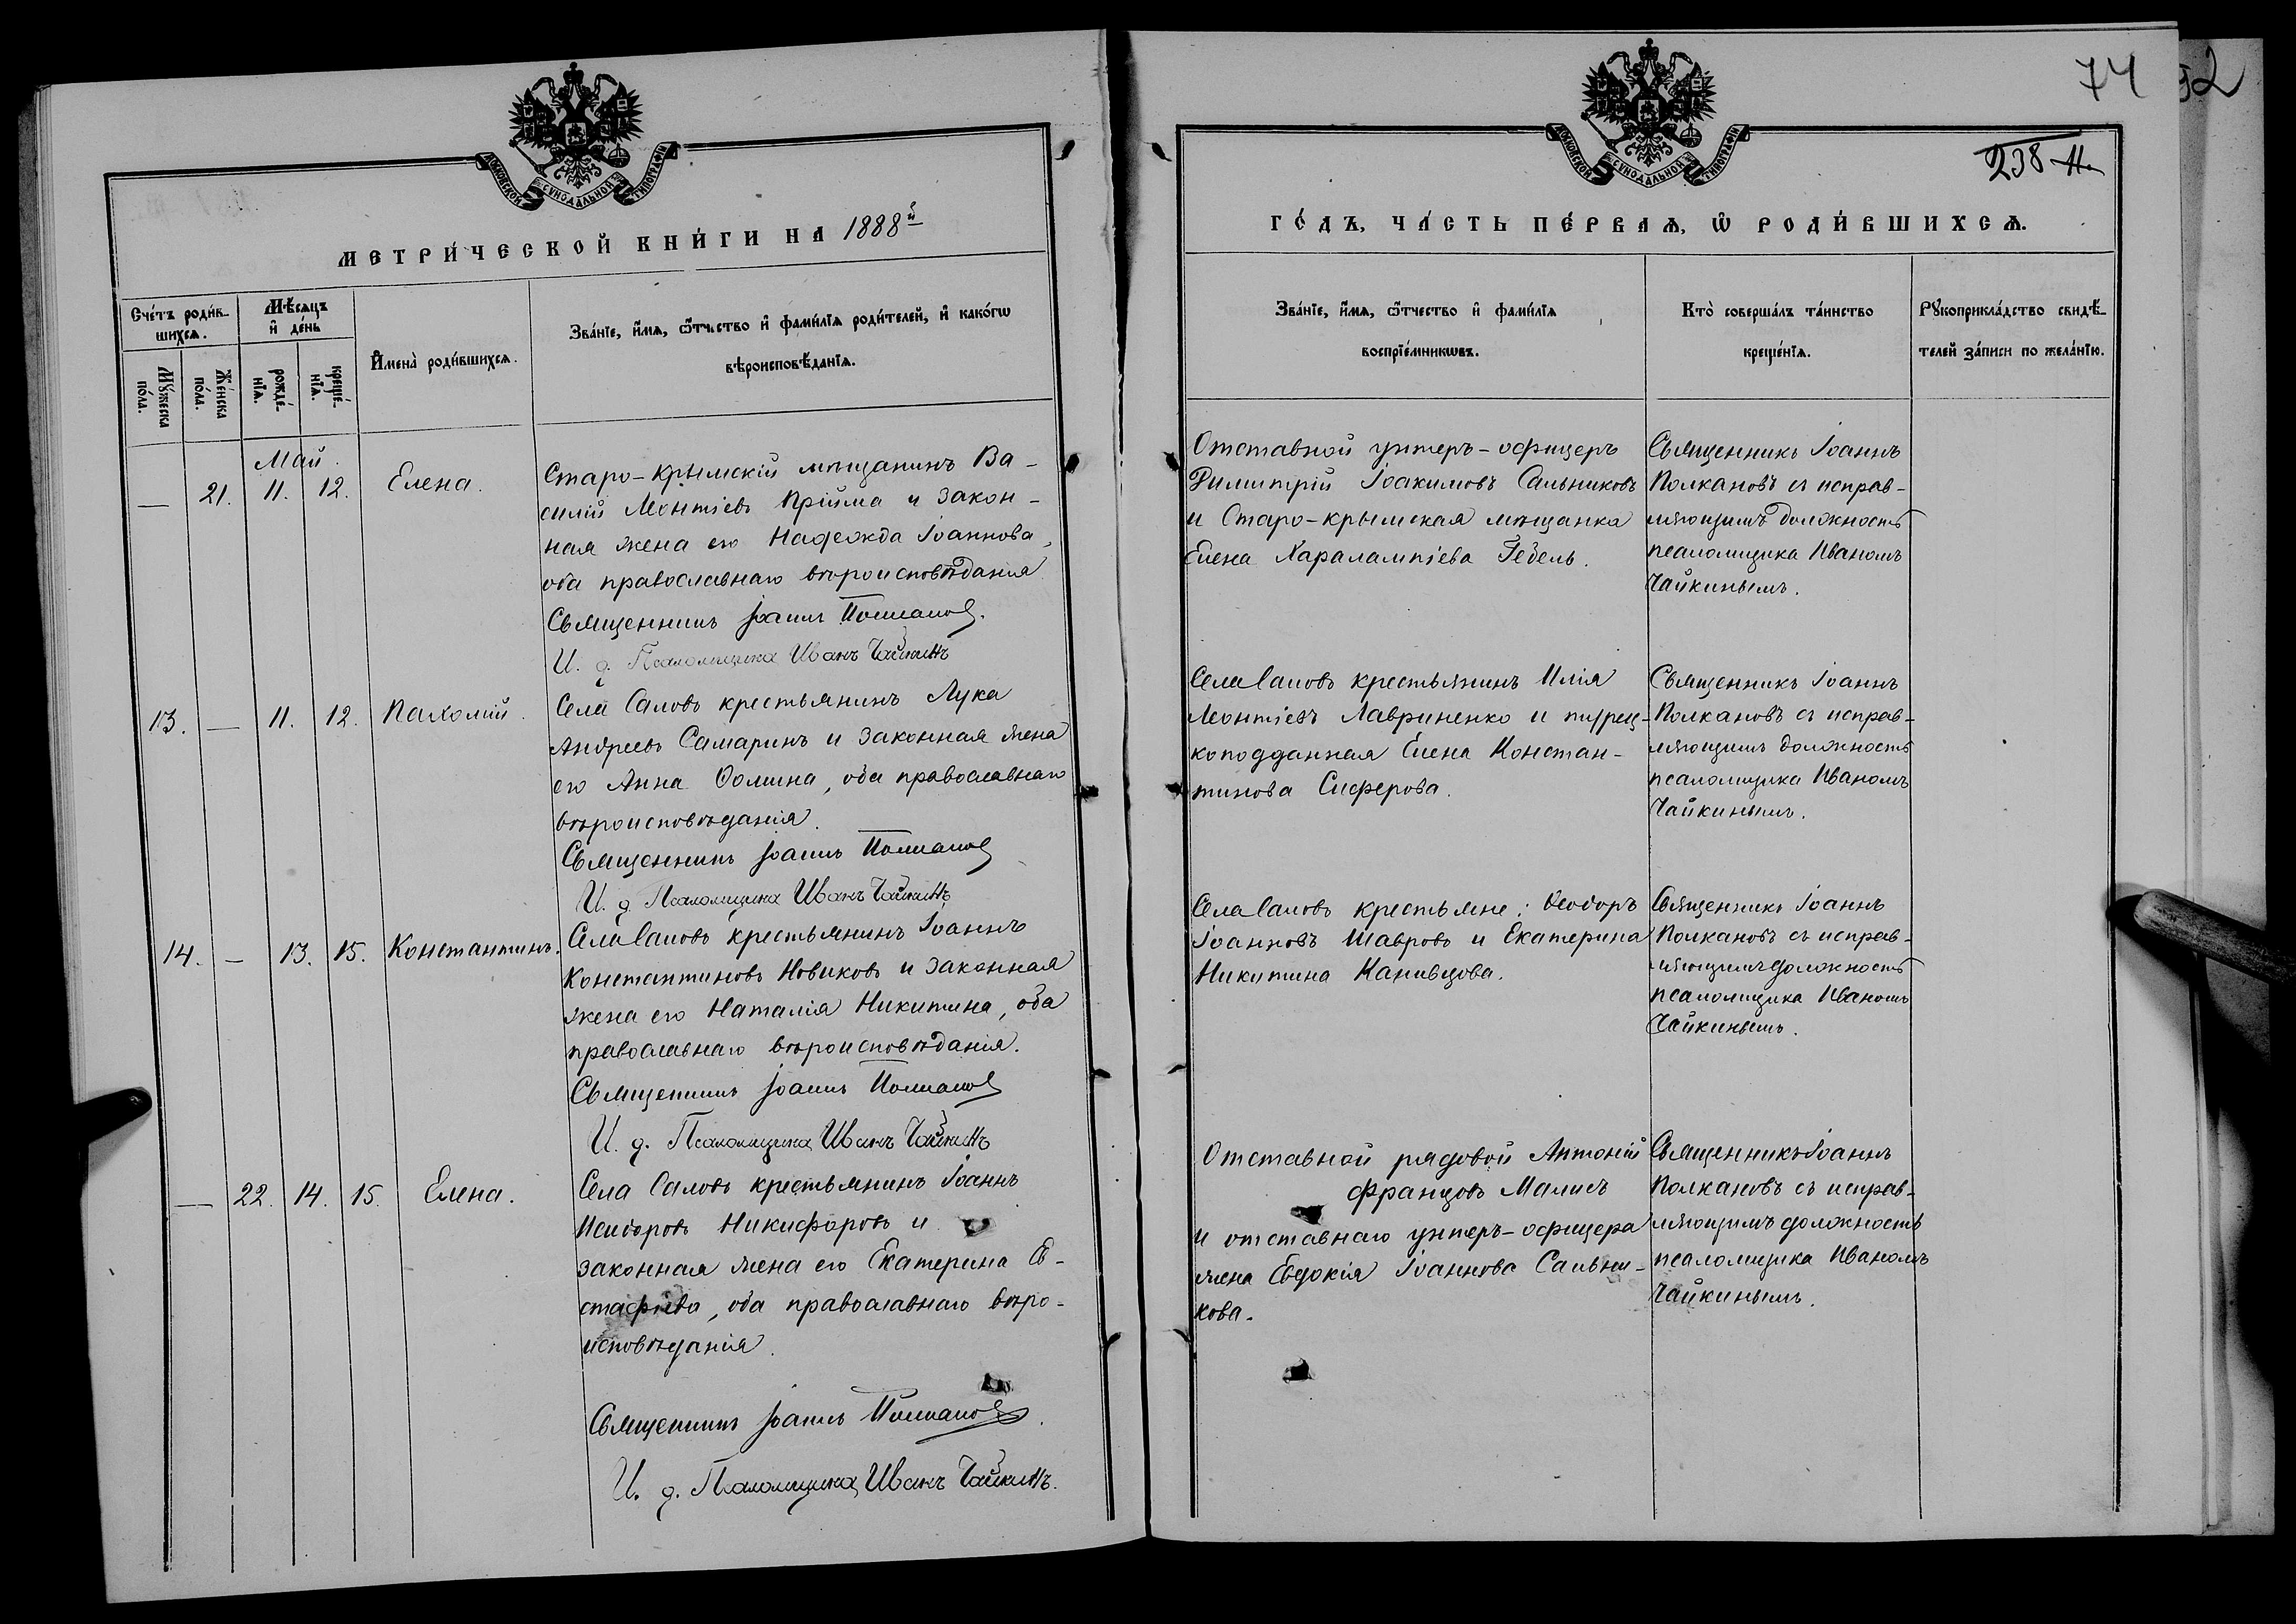 74
92
238
МОСКОВСКОЙ СУНОДАЛЬНОЙ ТИПОГРАФІИ
МЕТРИ́ЧЕСКОЙ КНИ́ГИ НА 1888й
Сче́тъ роди́в-
шихсѧ.
Мꙋ́жеска
по́ла.
Же́нска
по́ла.
Мѣ́сѧцъ
и҆ де́нь
рожде́-
нїѧ.
креще́-
нїѧ.
И҆мена̀ роди́вшихсѧ.
Зва́нїе, и҆́мѧ, ѻ҆́тчество и҆ фами́лїѧ роди́телей, и҆ како́гѡ
вѣроисповѣ́данїѧ.
Май.
— 21. 11. 12. Елена.
Старо-Крымскій мѣщанинъ Ва-
силій Леонтіевъ Прійма и закон-
ная жена его Надежда Іоаннова,
оба православнаго вѣроисповѣданія
Священникъ Іоаннъ Полкановъ.
И. д. Псаломщика Иванъ Чайкинъ
13. — 11. 12. Пахомій.
Села Саловъ крестьянинъ Лука
Андреевъ Самаринъ и законная жена
его Анна Ѳомина, оба православнаго
вѣроисповѣданія.
Священникъ Іоаннъ Полкановъ
И. д. Псаломщика Иванъ Чайкинъ
14. — 13. 15. Константинъ.
Села Саловъ крестьянинъ Іоаннъ
Константиновъ Новиковъ и законная
жена его Наталія Никитина, оба
православнаго вѣроисповѣданія.
Священникъ Іоаннъ Полкановъ
И. д. Псаломщика Иванъ Чайкинъ
— 22. 14. 15. Елена.
Села Саловъ крестьянинъ Іоаннъ
Исидоровъ Никифоровъ и
законная жена его Екатерина Ев-
стафіева, оба православнаго вѣро-
исповѣданія.
Священникъ Іоаннъ Полкановъ.
И. д. Псаломщика Иванъ Чайкинъ.
МОСКОВСКОЙ СУНОДАЛЬНОЙ ТИПОГРАФІИ
ГО́ДЪ, ЧА́СТЬ ПЕ́РВАѦ, Ѡ҆ РОДИ́ВШИХСѦ.
Зва́нїе, и҆́мѧ, ѻ҆́тчество и҆ фами́лїѧ
воспрїе́мникѡвъ.
Кто̀ соверша́лъ та́инство
креще́нїѧ.
Рꙋкоприкла́дство свидѣ́-
телей за́писи по жела́нїю.
Отставной унтеръ-офицеръ
Димитрій Іоакимовъ Сальниковъ
и Старо-крымская мѣщанка
Елена Харалампіева Гебель.
Священникъ Іоаннъ
Полкановъ съ исправ-
ляющимъ должность
псаломщика Иваномъ
Чайкинымъ.
Села Саловъ крестьянинъ Илія
Леонтіевъ Лавриненко и турец-
коподданная Елена Констан-
тинова Сиферова.
Священникъ Іоаннъ
Полкановъ съ исправ-
ляющимъ должность
псаломщика Иваномъ
Чайкинымъ.
Села Саловъ крестьяне: Ѳеодоръ
Іоанновъ Шавровъ и Екатерина
Никитина Канивцова.
Священникъ Іоаннъ
Полкановъ съ исправ-
ляющимъ должность
псаломщика Иваномъ
Чайкинымъ.
Отставной рядовой Антоній
Францовъ Малисъ
и отставнаго унтеръ-офицера
жена Евдокія Іоаннова Сальни-
кова.
Священникъ Іоаннъ
Полкановъ съ исправ-
ляющимъ должность
псаломщика Иваномъ
Чайкинымъ.